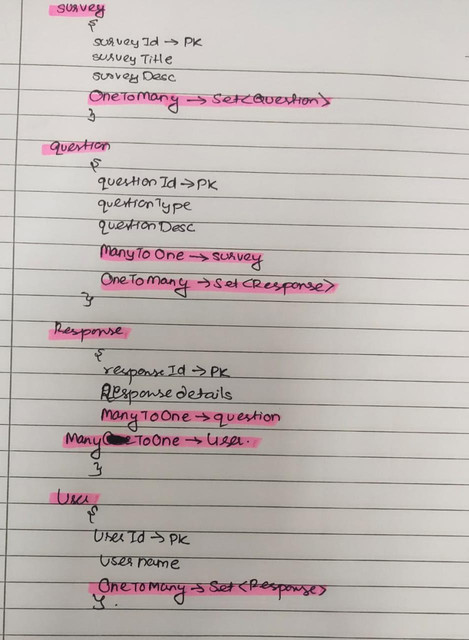 survey
{
survey Id → PK
survey Title
survey Desc
OneToMany → Set<Question>
}
question
{
question Id → PK
question Type
question Desc
ManyToOne → survey
OneToMany → Set<Response>
}
Response
{
response Id → PK
Response details
ManyToOne → question
Many ToOne → User.
}
User
{
User Id → PK
User name
OneToMany → Set<Response>
}.